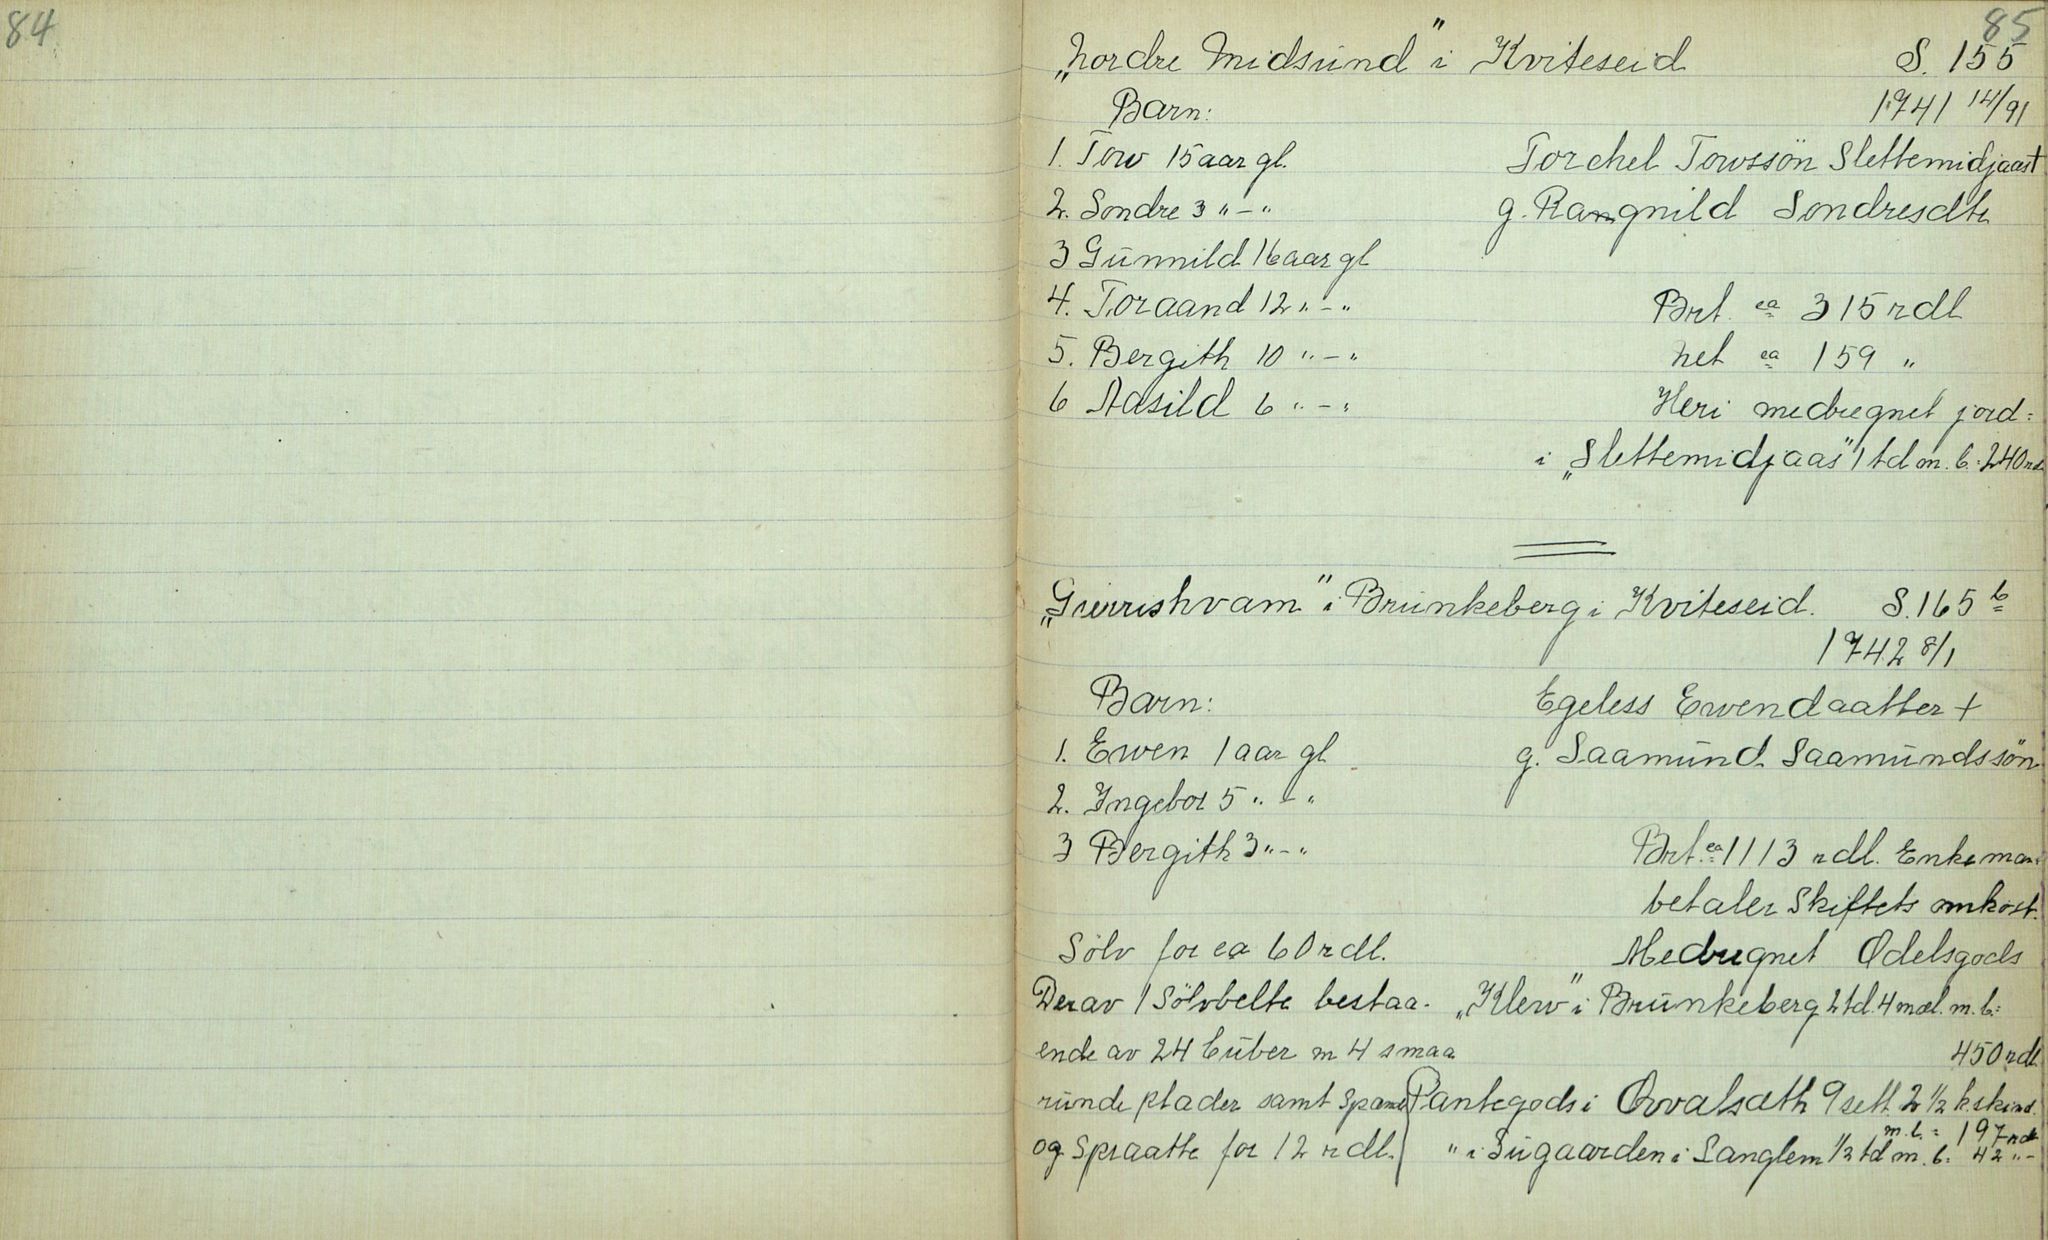 84
85
"Nordre Midsund" i Kviteseid S. 155
Barn: 1741 14/91
1. Tow 15 aar gl. Torchel Towssön Slettemidjaas +
2. Sondre 3 " - " g. Rangnild Sondresdtr
3 Gunnild 16 aar gl
4. Toraand 12 " - " Brt. ca 315 rdl
5. Bergith 10 " - " Net ca 159 "
6 Aasild 6 " - " Heri medregnet jord=
i "Slettemidjaas" 1 td m. b. = 240 rd
"Gierrishvam" i Brunkeberg i Kviteseid. S. 165 b
1742 8/1
Barn: Egeless Ewendaatter +
1. Ewen 1 aar gl g. Saamund Saamundssön
2. Ingebor 5 " - "
3 Bergith 3 " - " Brt. ca 1113 rdl. Enkeman
betaler Skiftets omkost.
Sölv for ca 60 rdl. Medregnet Odelsgods
Derav 1 Sölvbelte bestaa- "Klew" i Brunkeberg 2 td. 4 mæl. m. b. =
ende av 24 buber m 4 smaa 450 rdl
runde plader samt Spænde Pantegods i Qvvalsæth 9 sett. 2 1/2 k.skind.
m. b. = 197 rdl
og Spraatte for 12 rdl. " i Sugaarden i Langlem 1/2 td m. b. = 42 " -